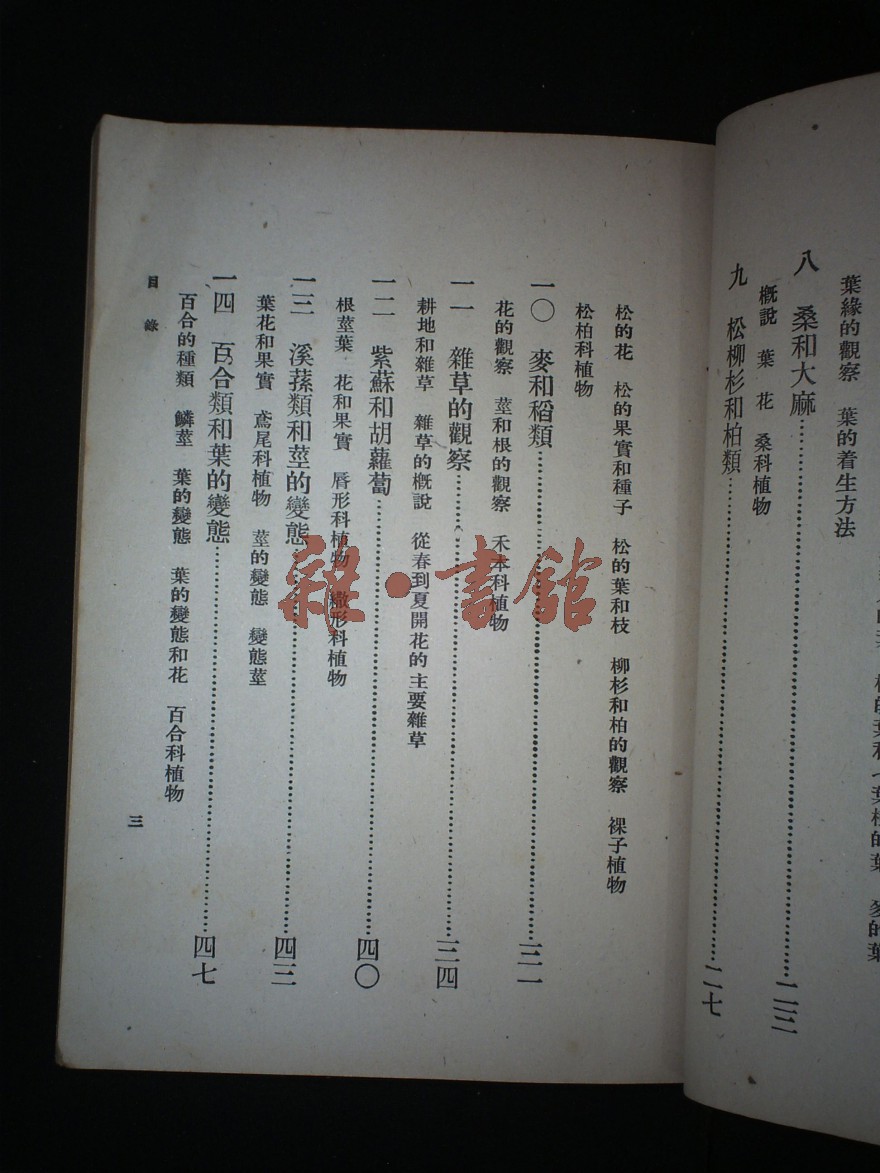 葉緣的觀察　葉的着生方法
八　桑和大麻……二三
概說　葉　花　桑科植物
九　松柳杉和柏類……二七
松的花　松的果實和種子　松的葉和枝　柳杉和柏的觀察　裸子植物
松柏科植物
一〇　麥和稻類……三一
花的觀察　莖和根的觀察　禾本科植物
一一　雜草的觀察……三四
耕地和雜草　雜草的概說　從春到夏開花的主要雜草
一二　紫蘇和胡蘿蔔……四〇
根莖葉　花和果實　唇形科植物　繖形科植物
一三　溪蓀類和莖的變態……四三
葉花和果實　鳶尾科植物　莖的變態　變態莖
一四　百合類和葉的變態……四七
百合的種類　鱗莖　葉的變態　葉的變態和花　百合科植物
目錄
三
雜·書館